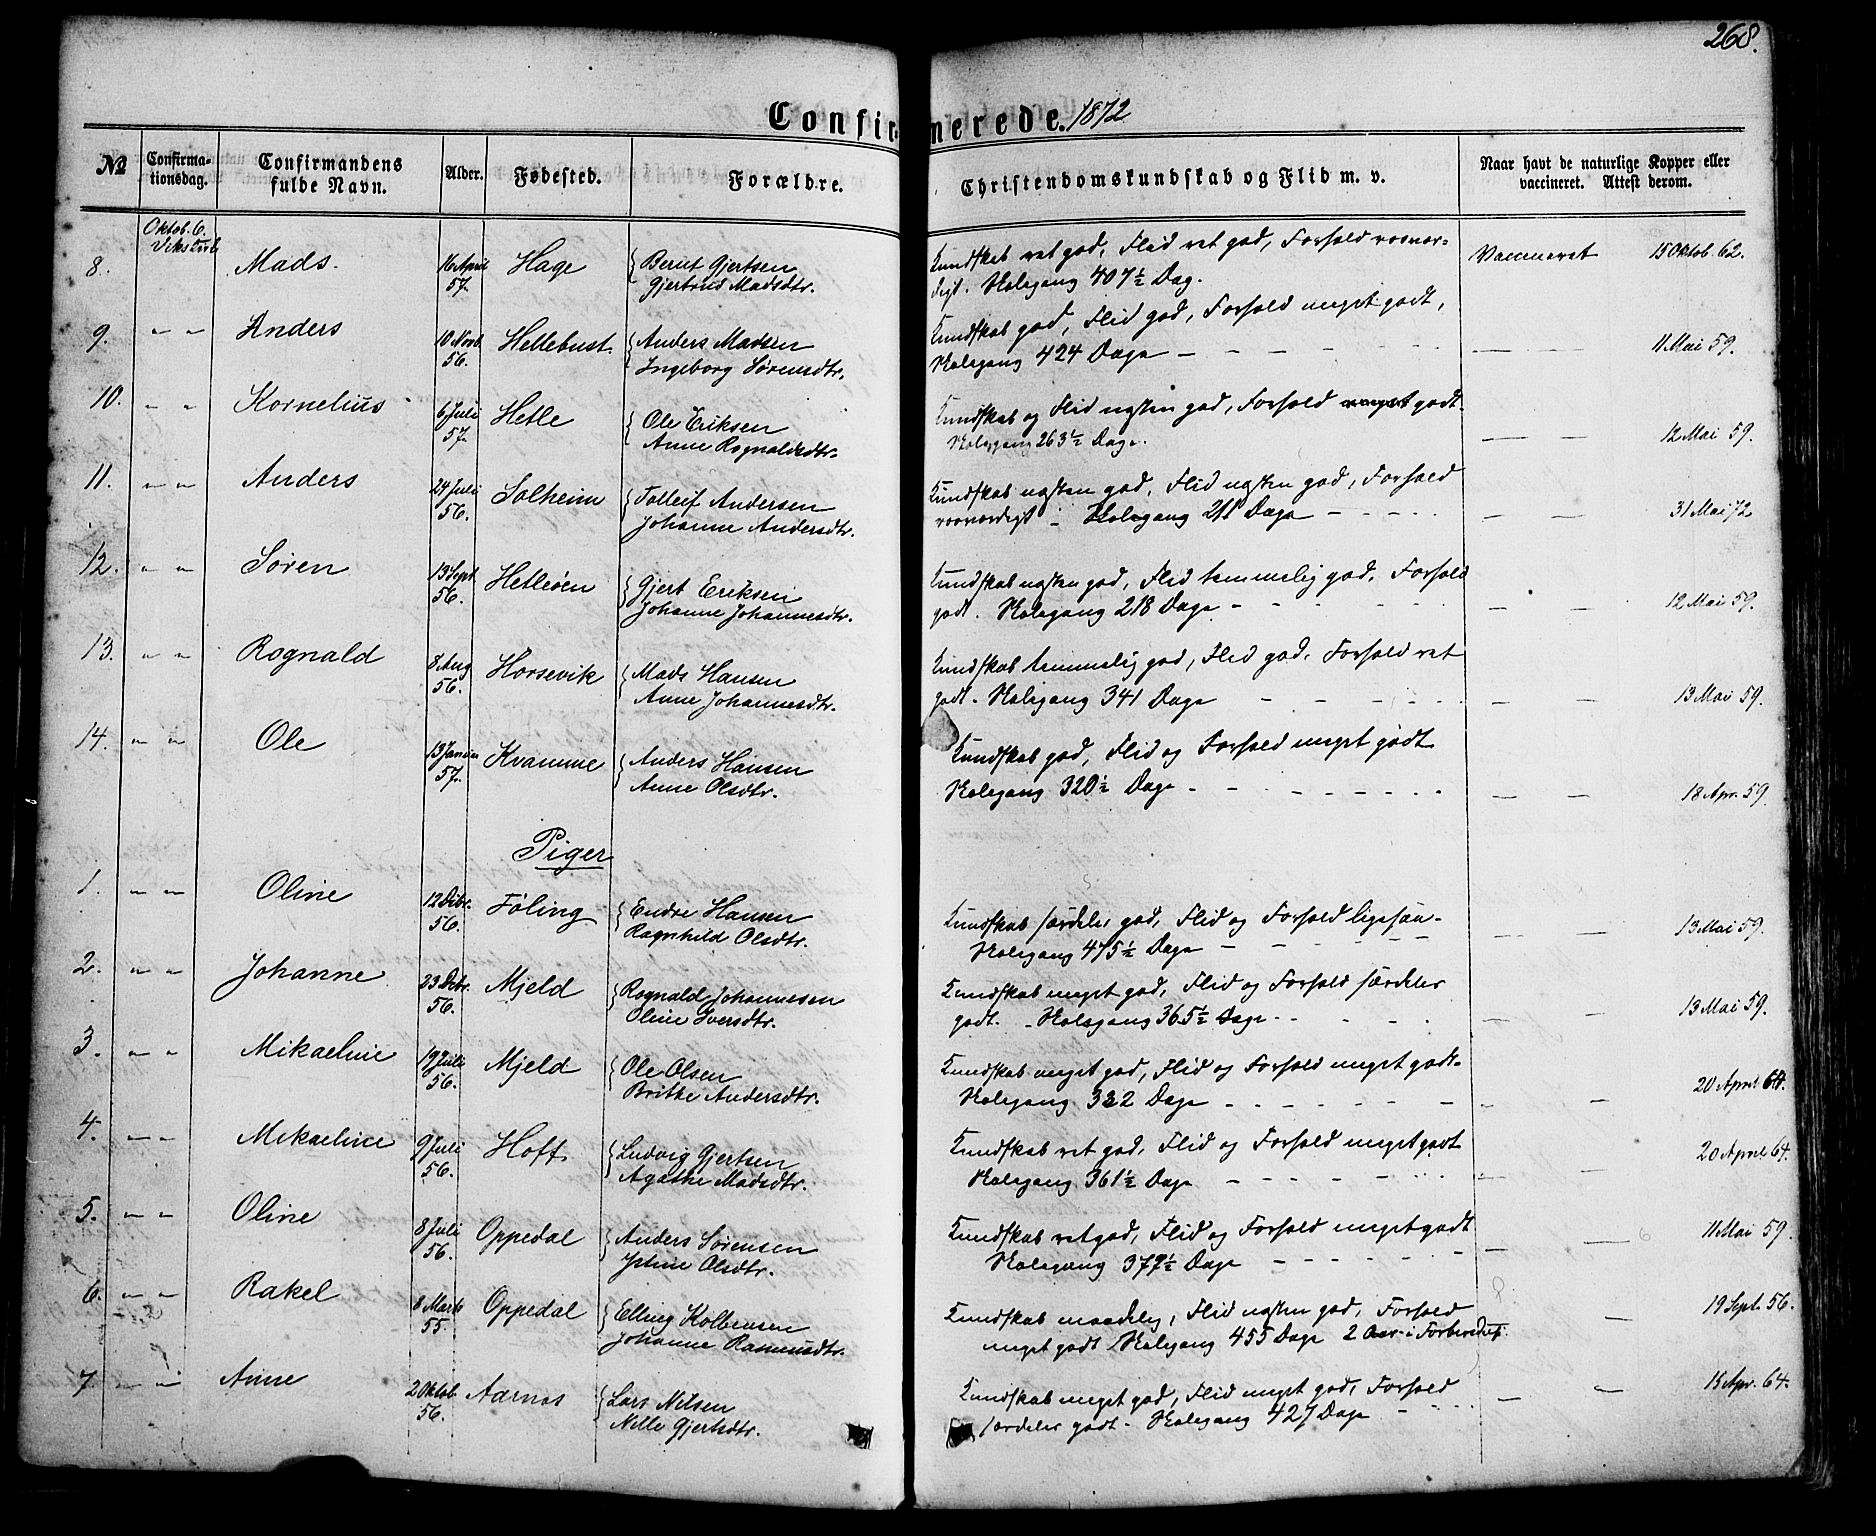 268.
Confirmerede. 1872
No Confirmationsdag. Confirmandens fulde Navn. Alder. Fødested. Forældre. Christendomskundskab og Flid m. v. Naar havt de naturlige Kopper eller vaccineret. Attest derom.
Oktob. 6.
8. Mads. 16 April 57. Hage { Bernt Gjertsen Kundskab ret god, Flid ret god, Forhold rosvær- Vaccineret 15 Oktob. 62.
Gjertrud Madsdtr. digt. Skolegang 407½ Dag.
9. " " Anders 10 Novb. 56. Hellebust. { Anders Madsen Kundskab god, Flid god, Forhold meget godt,
Ingeborg Sørensdtr. Skolegang 424 Dage — — 11 Mai 59.
10. " " Kornelius 6 Juli 57. Hetle { Ole Eriksen Kundskab og Flid næsten god, Forhold meget godt.
Anne Rognaldsdtr. Skolegang 263½ Dage. — — 12 Mai 59.
11. " " Anders 24 Juli 56. Solheim { Tolleif Andersen Kundskab næsten god, Flid næsten god, Forhold
Johanne Andersdtr. rosværdigt - Skolegang 211 Dage — — 31 Mai 72
12. " " Søren 13 Sept 56. Hetleøen { Gjert Eriksen Kundskab næsten god, Flid temmelig god, Forhold
Johanne Johannesdtr. godt. Skolegang 218 Dage — — 12 Mai 59.
13. " " Rognald 8 Aug 56. Horsevik { Mads Hansen Kundskab temmelig god, Flid god, Forhold ret
Anne Johannesdtr. godt. Skolegang 341 Dage — — 13 Mai 59.
14. " " Ole 13 Januar 57. Kvamme { Anders Hansen Kundskab god, Flid og Forhold meget godt
Anne Olsdtr. Skolegang 320½ Dage — — 18 Apr. 59.
Piger
1. " " Oline 12 Debr. 56. Føling { Endre Hansen Kundskab særdeles god, Flid og Forhold ligesaa-
Ragnhild Olsdtr. Skolegang 475½ Dage — — 13 Mai 59.
2. " " Johanne 23 Debr. 56. Mjeld { Rognald Johannesen Kundskab meget god, Flid og Forhold særdeles
Oline Iversdtr. godt. - Skolegang 365½ Dage — — 13 Mai 59.
3. " " Mikaeline 19 Juli 56. Mjeld { Ole Olsen Kundskab meget god, Flid og Forhold meget godt.
Brithe Andersdtr. Skolegang 332 Dage — — 20 April 64.
4. " " Mikaeline 9 Juli 56. Hoff { Ludvig Gjertsen Kundskab ret god, Flid og Forhold meget godt
Agathe Madsdtr. Skolegang 361½ Dage — — 20 April 64.
5. " " Oline 8 Juli 56. Oppedal { Anders Sørensen Kundskab ret god, Flid og Forhold meget godt
Olsdtr. Skolegang 372½ Dage — — 11 Mai 59.
6. " " Rakel 8 Marts 55. Oppedal { Elling Kolbensen Kundskab maadelig, Flid næsten god, Forhold — 19 Sept. 56.
Johanne Rasmusdtr. meget godt Skolegang 455 Dage 2 Aar i Forberedels.
7. " " Anne 2 Oktob. 56. Aarnæs { Lars Nilsen Kundskab meget god, Flid meget god, Forhold — — 15 Apr. 64.
Nille Gjertsdtr. særdeles godt - Skolegang 427 Dage